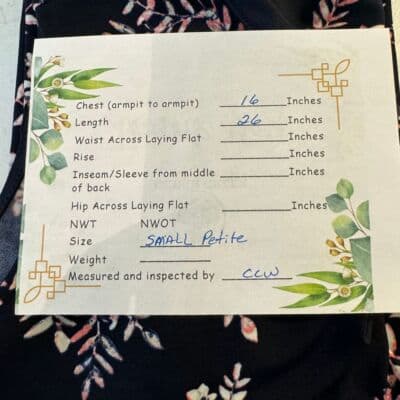 Chest (armpit to armpit) 16 Inches
Length 26 Inches
Waist Across Laying Flat Inches
Rise Inches
Inseam/Sleeve from middle Inches
of back
Hip Across Laying Flat Inches
NWT NWOT
Size SMALL Petite
Weight
Measured and inspected by CCW